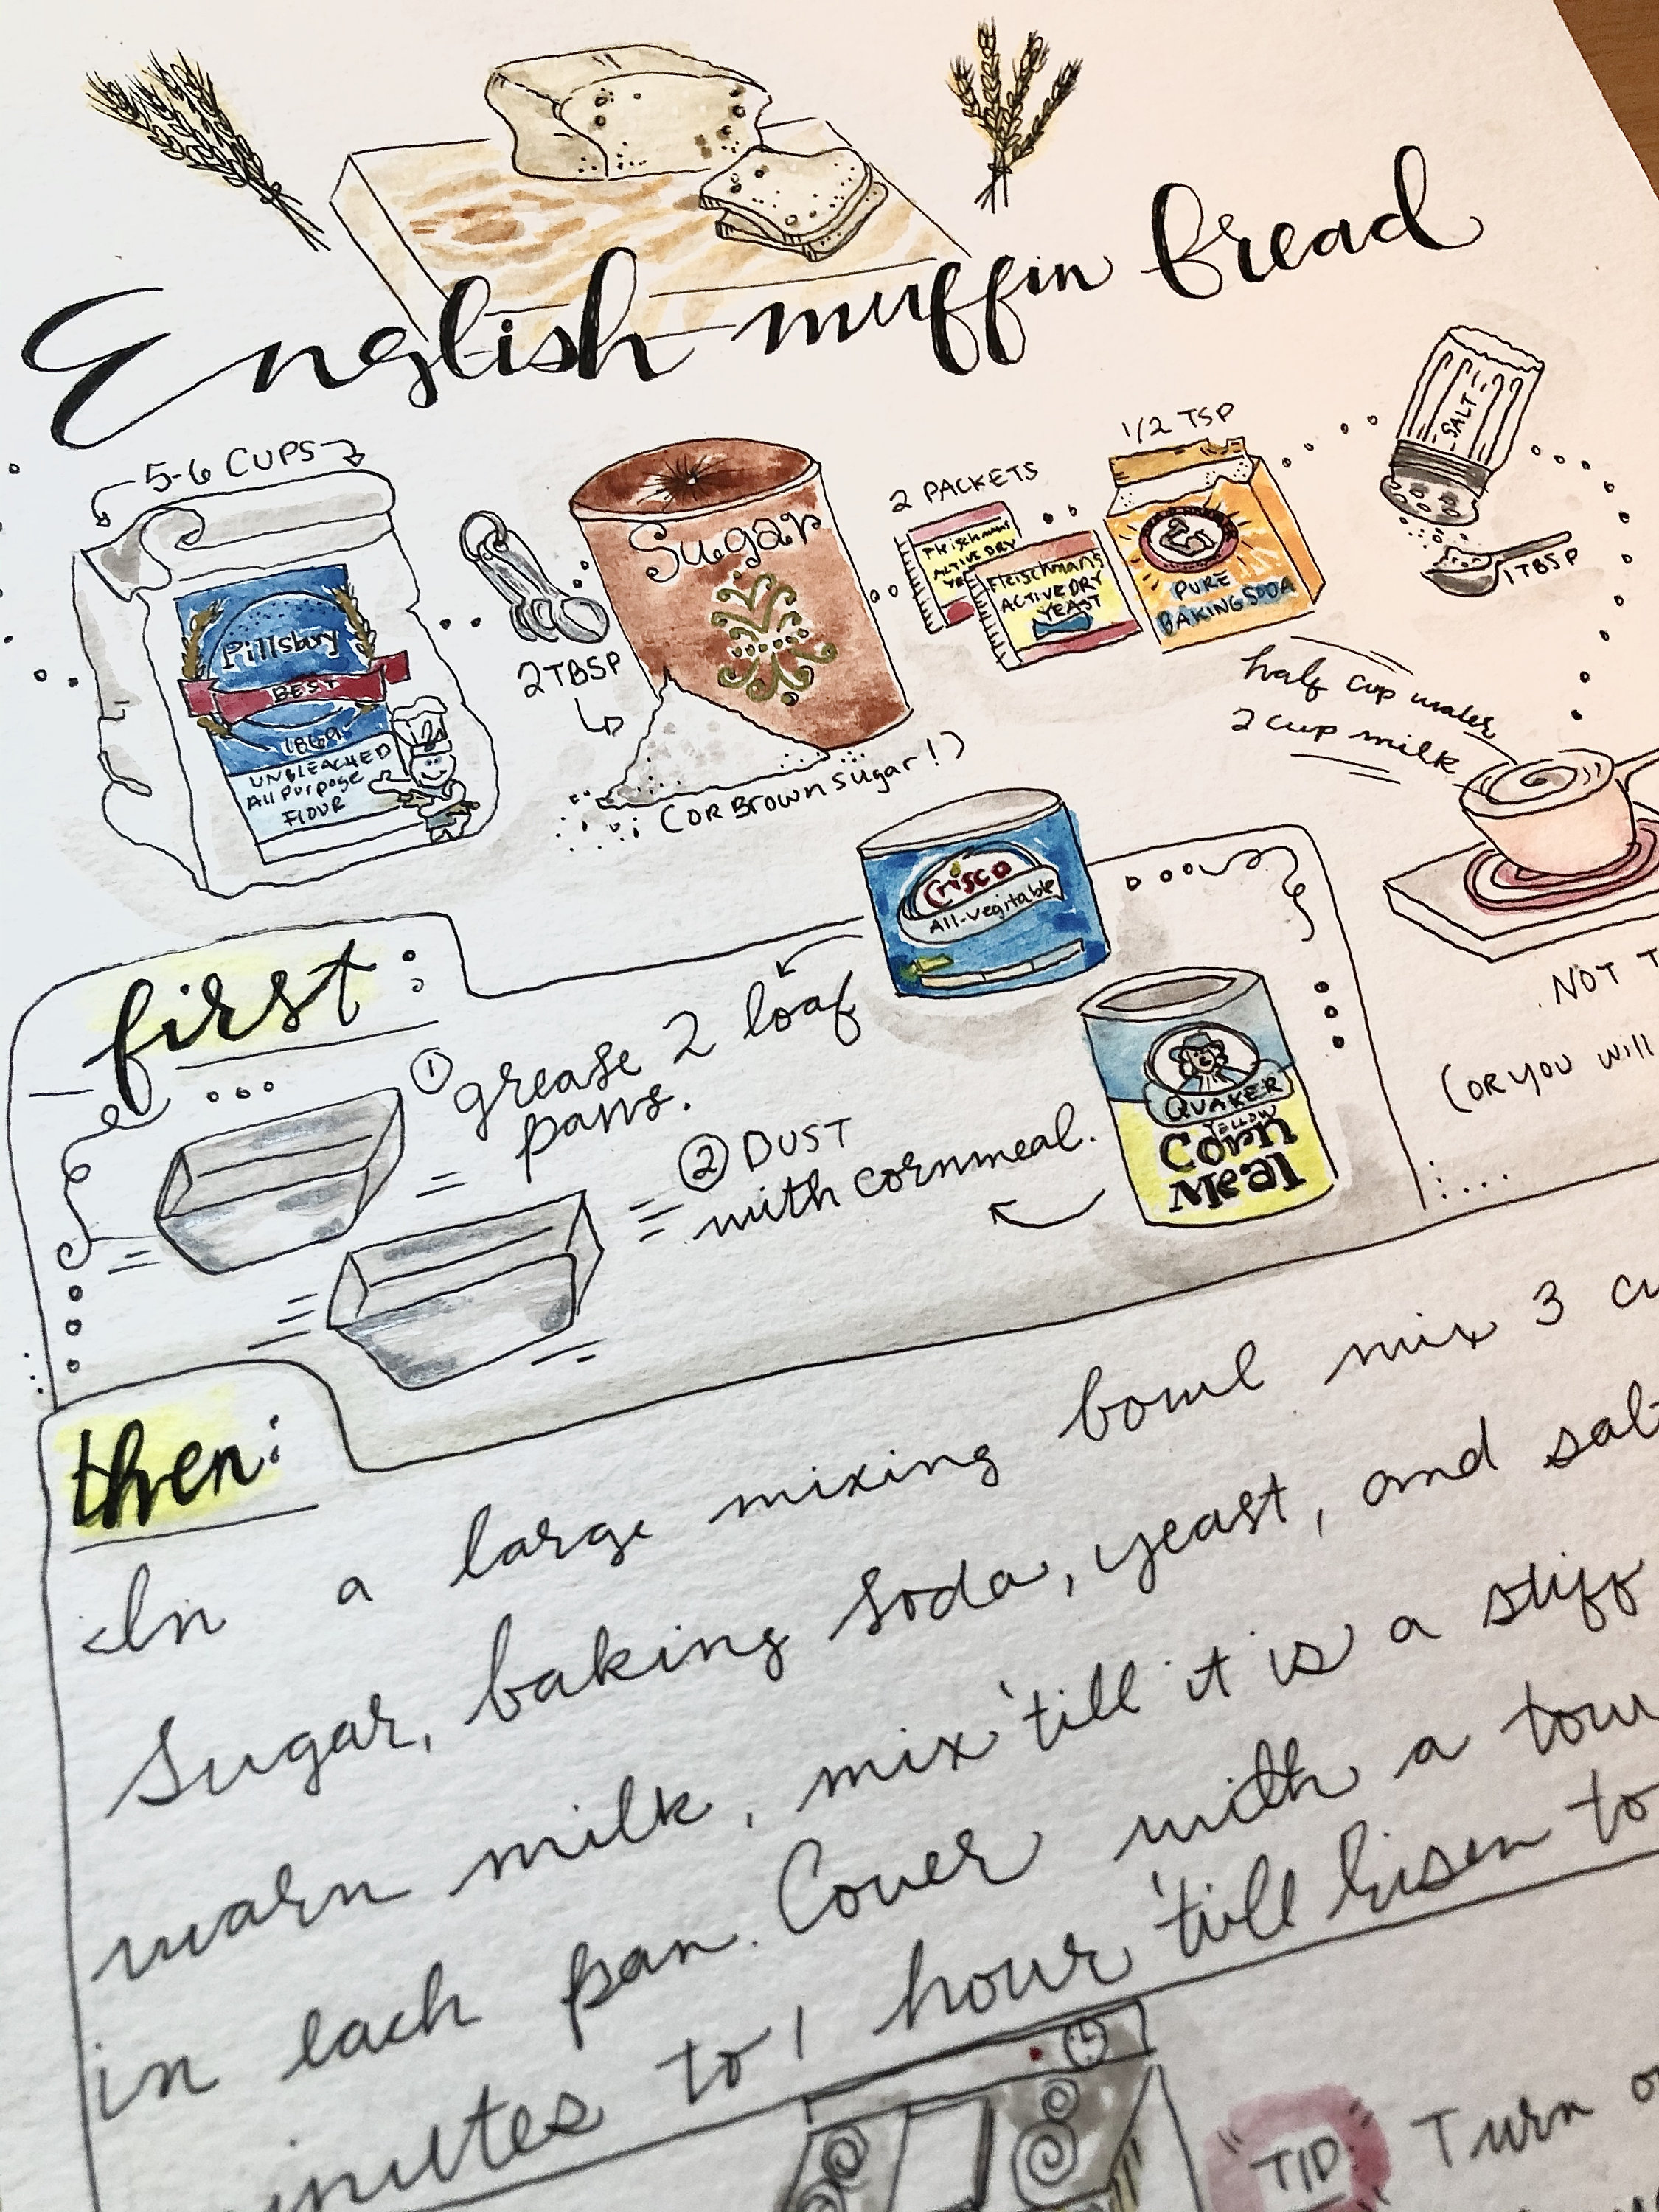 English muffin bread
5-6 CUPS
Pillsbury
BEST
1869
UNBLEACHED
All Purpose
FLOUR
2 TBSP
Sugar
(OR Brown sugar!)
2 PACKETS
Fleischmans
ACTIVE DRY
Fleischmans
ACTIVE DRY
YEAST
1/2 TSP
PURE
BAKING SODA
SALT
1 TBSP
half cup water
2 cup milk
NOT
(OR YOU Will
first:
① grease 2 loaf
pans.
② DUST
with cornmeal.
Crisco
All-Vegitable
QUAKER
YELLOW
Corn
Meal
then:
In a large mixing bowl mix 3
Sugar, baking soda, yeast, and salt
warm milk, mix 'till it is a stiff
in each pan. Cover with a
to 1 hour 'till risen to
TIP
Turn